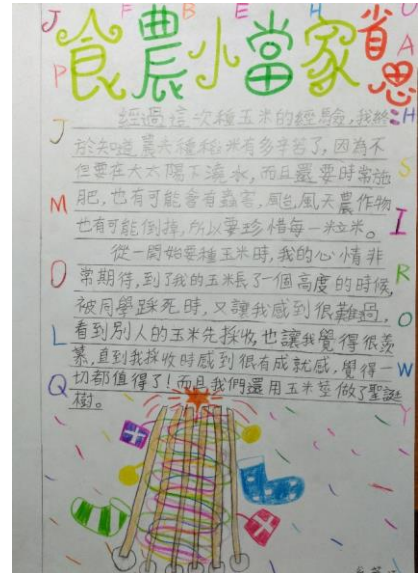 J F B E H U
食農小當家省思
P A
經過這次種玉米的經驗，我終
於知道農夫種稻米有多辛苦了，因為不
但要在大太陽下澆水，而且還要時常施
肥，也有可能會有蟲害，颱風天農作物
也有可能倒掉，所以要珍惜每一粒米。
從一開始要種玉米時，我的心情非
常期待，到了我的玉米長了一個高度的時候，
被同學踩死時，又讓我感到很難過，
看到別人的玉米先採收，也讓我覺得很羨
慕，直到我採收時感到很有成就感，覺得一
切都值得了！而且我們還用玉米莖做了聖誕
樹。
J
M
O
L
Q
H
S
I
R
O
W
Y